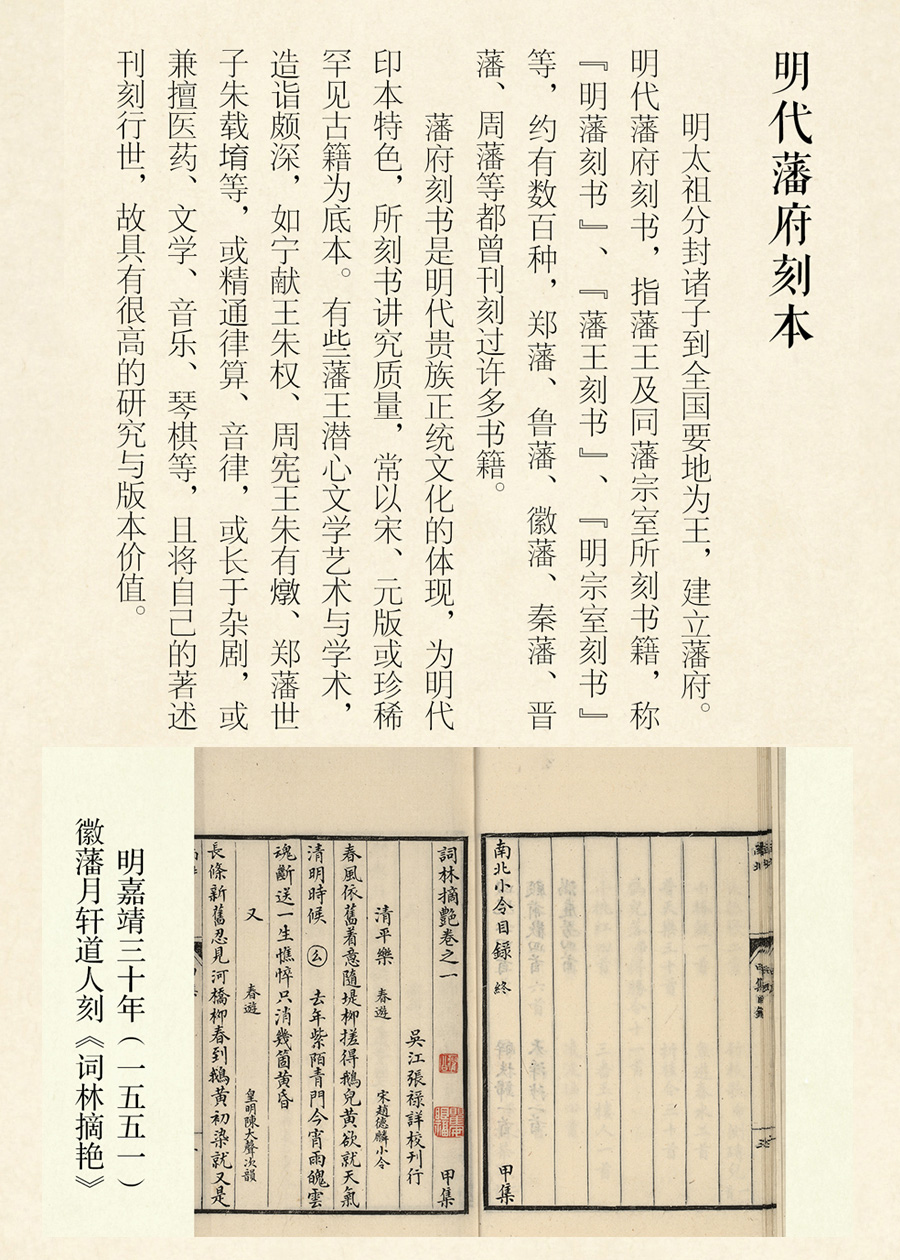 明代藩府刻本
明太祖分封诸子到全国要地为王，建立藩府。
明代藩府刻书，指藩王及同藩宗室所刻书籍，称
『明藩刻书』、『藩王刻书』、『明宗室刻书』
等，约有数百种，郑藩、鲁藩、徽藩、秦藩、晋
藩、周藩等都曾刊刻过许多书籍。
藩府刻书是明代贵族正统文化的体现，为明代
印本特色，所刻书讲究质量，常以宋、元版或珍稀
罕见古籍为底本。有些藩王潜心文学艺术与学术，
造诣颇深，如宁献王朱权、周宪王朱有燉、郑藩世
子朱载堉等，或精通律算、音律，或长于杂剧，或
兼擅医药、文学、音乐、琴棋等，且将自己的著述
刊刻行世，故具有很高的研究与版本价值。
南北小令目録 終 甲集
詞林摘艷卷之一 甲集
吳江張祿詳校刊行
清平樂 春遊 宋趙德麟小令
春風依舊着意隨堤柳搓得鵝兒黄欲就天氣
清明時候 幺 去年紫陌青門今宵雨魄雲
魂斷送一生憔悴只消幾箇黄昏
又 春遊 皇明陳大聲次韻
長條新舊忍見河橋柳春到鵝黄初染就又是
明嘉靖三十年（一五五一）
徽藩月轩道人刻《词林摘艳》